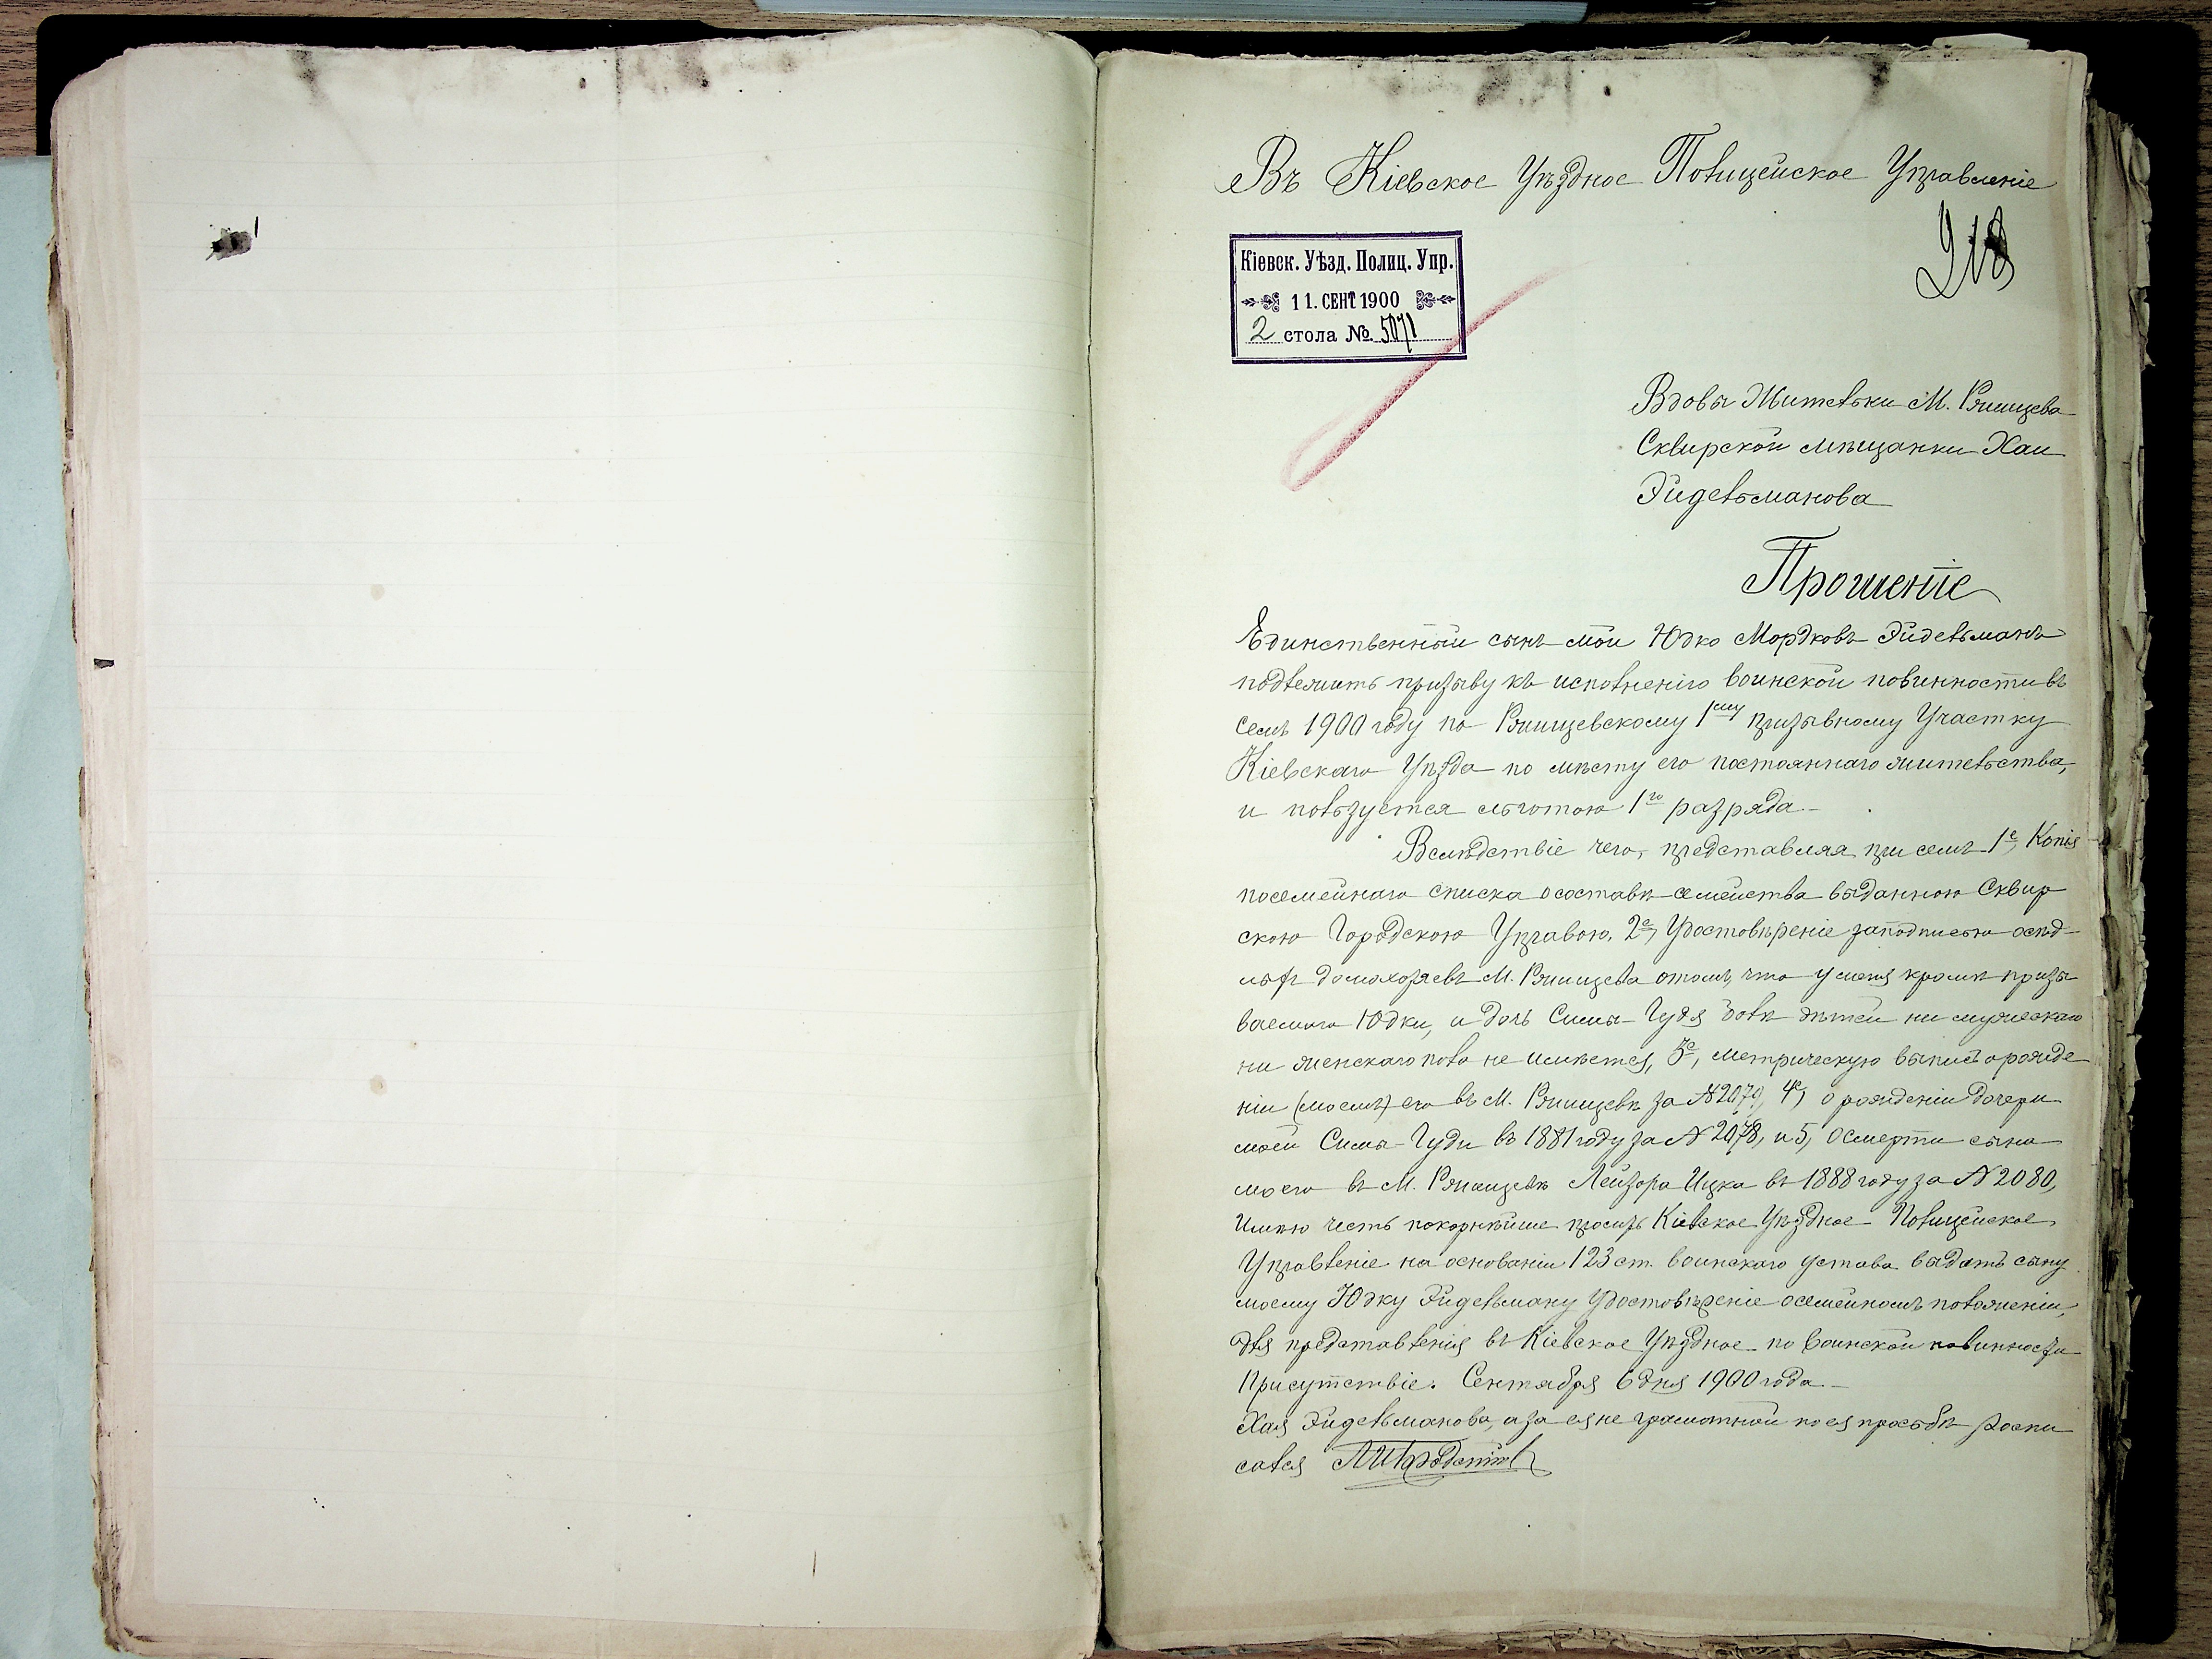 Въ Кіевское Уѣздное Полицейское Управленіе
218
Кіевск. Уѣзд. Полиц. Упр.
11. СЕНТ 1900
2 стола № 5071
Вдовы Жительки М. Ржищева
Сквирской мѣщанки Хаи
Эйдельманова
Прошеніе
Единственный сынъ мой Юдко Мордковъ Эйдельманъ
подлежитъ призыву къ исполненію воинской повинности въ
семъ 1900 году по Ржищевскому 1му призывному Участку
Кіевскаго Уѣзда по мѣсту его постояннаго жительства,
и пользуется льготою 1го разряда
Вслѣдствіе чего, представляя при семъ 1е, Копія
посемейнаго списка о составѣ семейства выданною Сквир
скою Городскою Управою, 2е, Удостовѣреніе за подписью осѣд-
лыхъ домохозяевъ М. Ржищева о томъ, что у меня кромѣ призы
ваемаго Юдки, и дочь Симы-Гудя болѣ дѣтей ни мужескаго
ни женскаго пола не имѣется, 3е, метрическую выпись о рожде
ніи (моемъ) его въ М. Ржищевѣ за № 2079, 4е, о рожденіи дочери
моей Симы-Гуди въ 1881 году за № 2078, и 5, о смерти сына
моего въ М. Ржищевѣ Лейзора Ицка въ 1888 году за № 2080,
Имѣю честь покорнѣйше просить Кіевское Уѣздное Полицейское
Управленіе на основаніи 123 ст. воинскаго устава выдать сыну
моему Юдку Эйдельману Удостовѣреніе о семейномъ положеніи,
для представленія въ Кіевское Уѣздное по воинской повинности
Присутствіе. Сентября 6 дня 1900 года
Хая Эйдельманова, а за ея не грамотной по ея просьбѣ роспи
сался